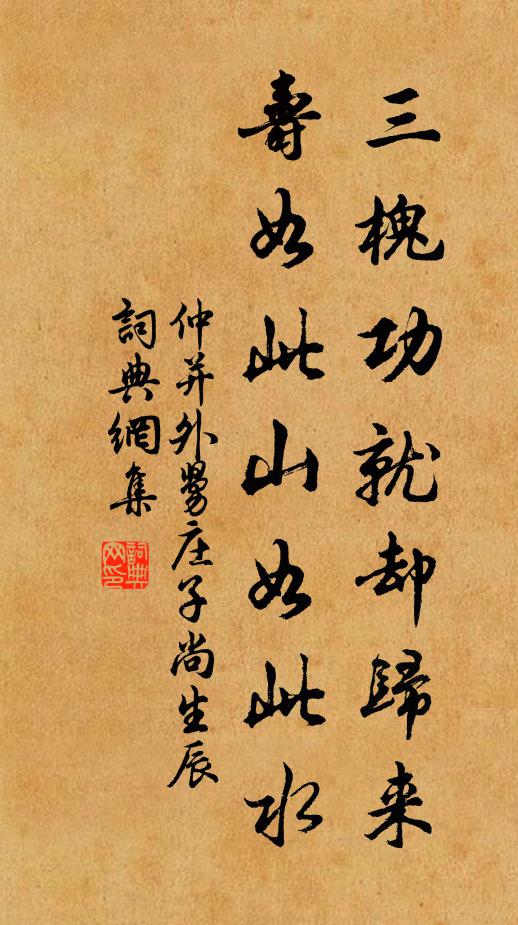 三槐功就却歸来
壽如此山如此水
仲并外舅庄子尚生辰
詞典網集
詞典网印